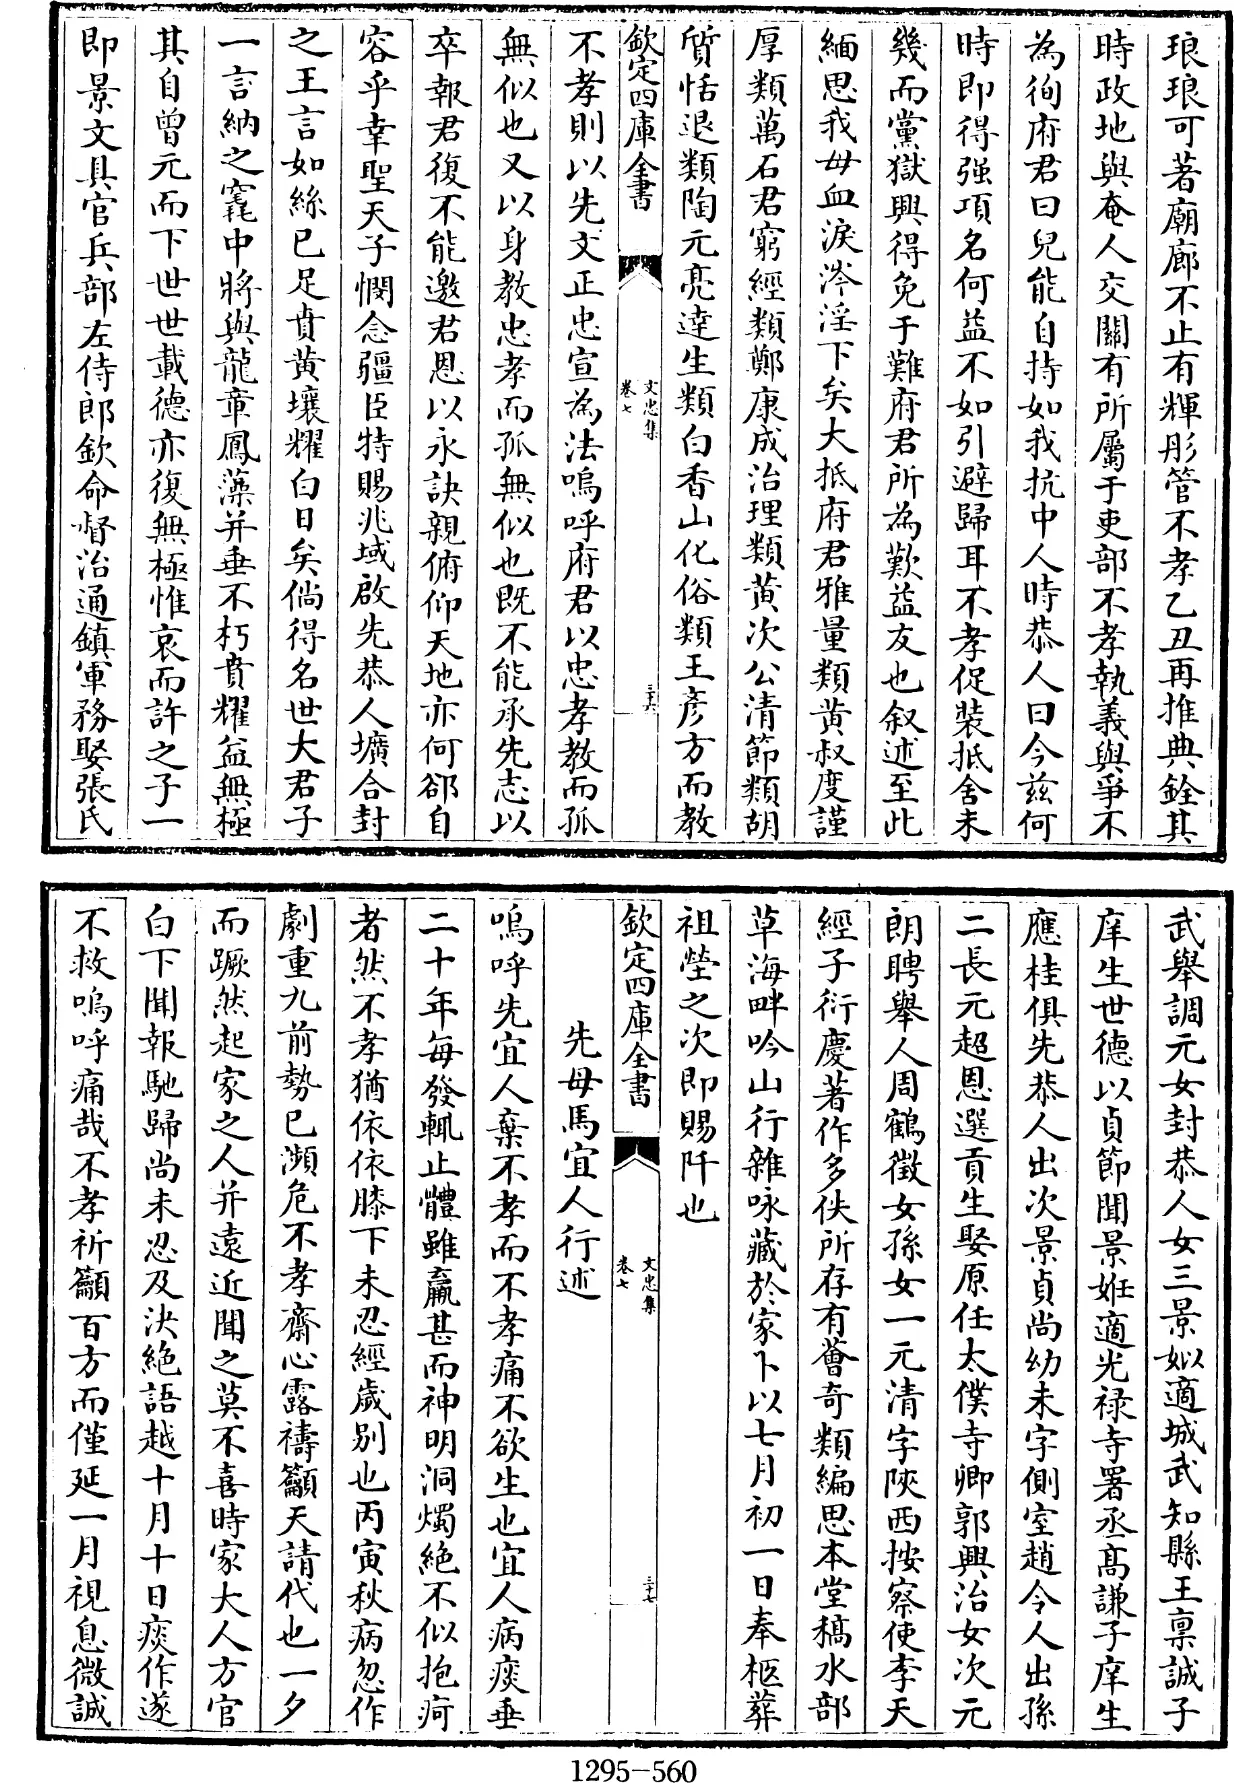 琅琅可著廟廊不止有輝彤管不孝乙丑再推典銓其
時政地與奄人交關有所屬于吏部不孝執義與爭不
為徇府君曰兒能自持如我抗中人時恭人曰今茲何
時即得强項名何益不如引避歸耳不孝促裝抵舍未
幾而黨獄興得免于難府君所為歎益友也叙述至此
緬思我母血淚涔淫下矣大抵府君雅量類黄叔度謹
厚類萬石君窮經類鄭康成治理類黄次公清節類胡
質恬退類陶元亮達生類白香山化俗類王彦方而教
欽定四庫全書
文忠集
卷七
三十六
不孝則以先文正忠宣為法嗚呼府君以忠孝教而孤
無似也又以身教忠孝而孤無似也既不能承先志以
卒報君復不能邀君恩以永訣親俯仰天地亦何郤自
容乎幸聖天子憫念疆臣特賜兆域啟先恭人壙合封
之王言如絲已足賁黄壤耀白日矣倘得名世大君子
一言納之窀中將與龍章鳳藻并垂不朽賁耀益無極
其自曾元而下世世載德亦復無極惟哀而許之子一
即景文具官兵部左侍郎欽命督治通鎮軍務娶張氏
武舉調元女封恭人女三景姒適城武知縣王稟誠子
庠生世德以貞節聞景姙適光禄寺署丞髙謙子庠生
應桂俱先恭人出次景貞尚幼未字側室趙令人出孫
二長元超恩選貢生娶原任太僕寺卿郭興治女次元
朗聘舉人周鶴徵女孫女一元清字陝西按察使李天
經子衍慶著作多佚所存有薈奇類編思本堂稿水部
草海畔吟山行雜咏藏於家卜以七月初一日奉柩葬
祖塋之次即賜阡也
欽定四庫全書
文忠集
卷七
三十七
先母馬宜人行述
嗚呼先宜人棄不孝而不孝痛不欲生也宜人病痰垂
二十年每發輒止體雖羸甚而神明洞燭絶不似抱疴
者然不孝猶依依膝下未忍經歲别也丙寅秋病忽作
劇重九前勢已瀕危不孝齋心露禱籲天請代也一夕
而蹶然起家之人并遠近聞之莫不喜時家大人方官
白下聞報馳歸尚未忍及決絶語越十月十日痰作遂
不救嗚呼痛哉不孝祈籲百方而僅延一月視息微誠
1295-560